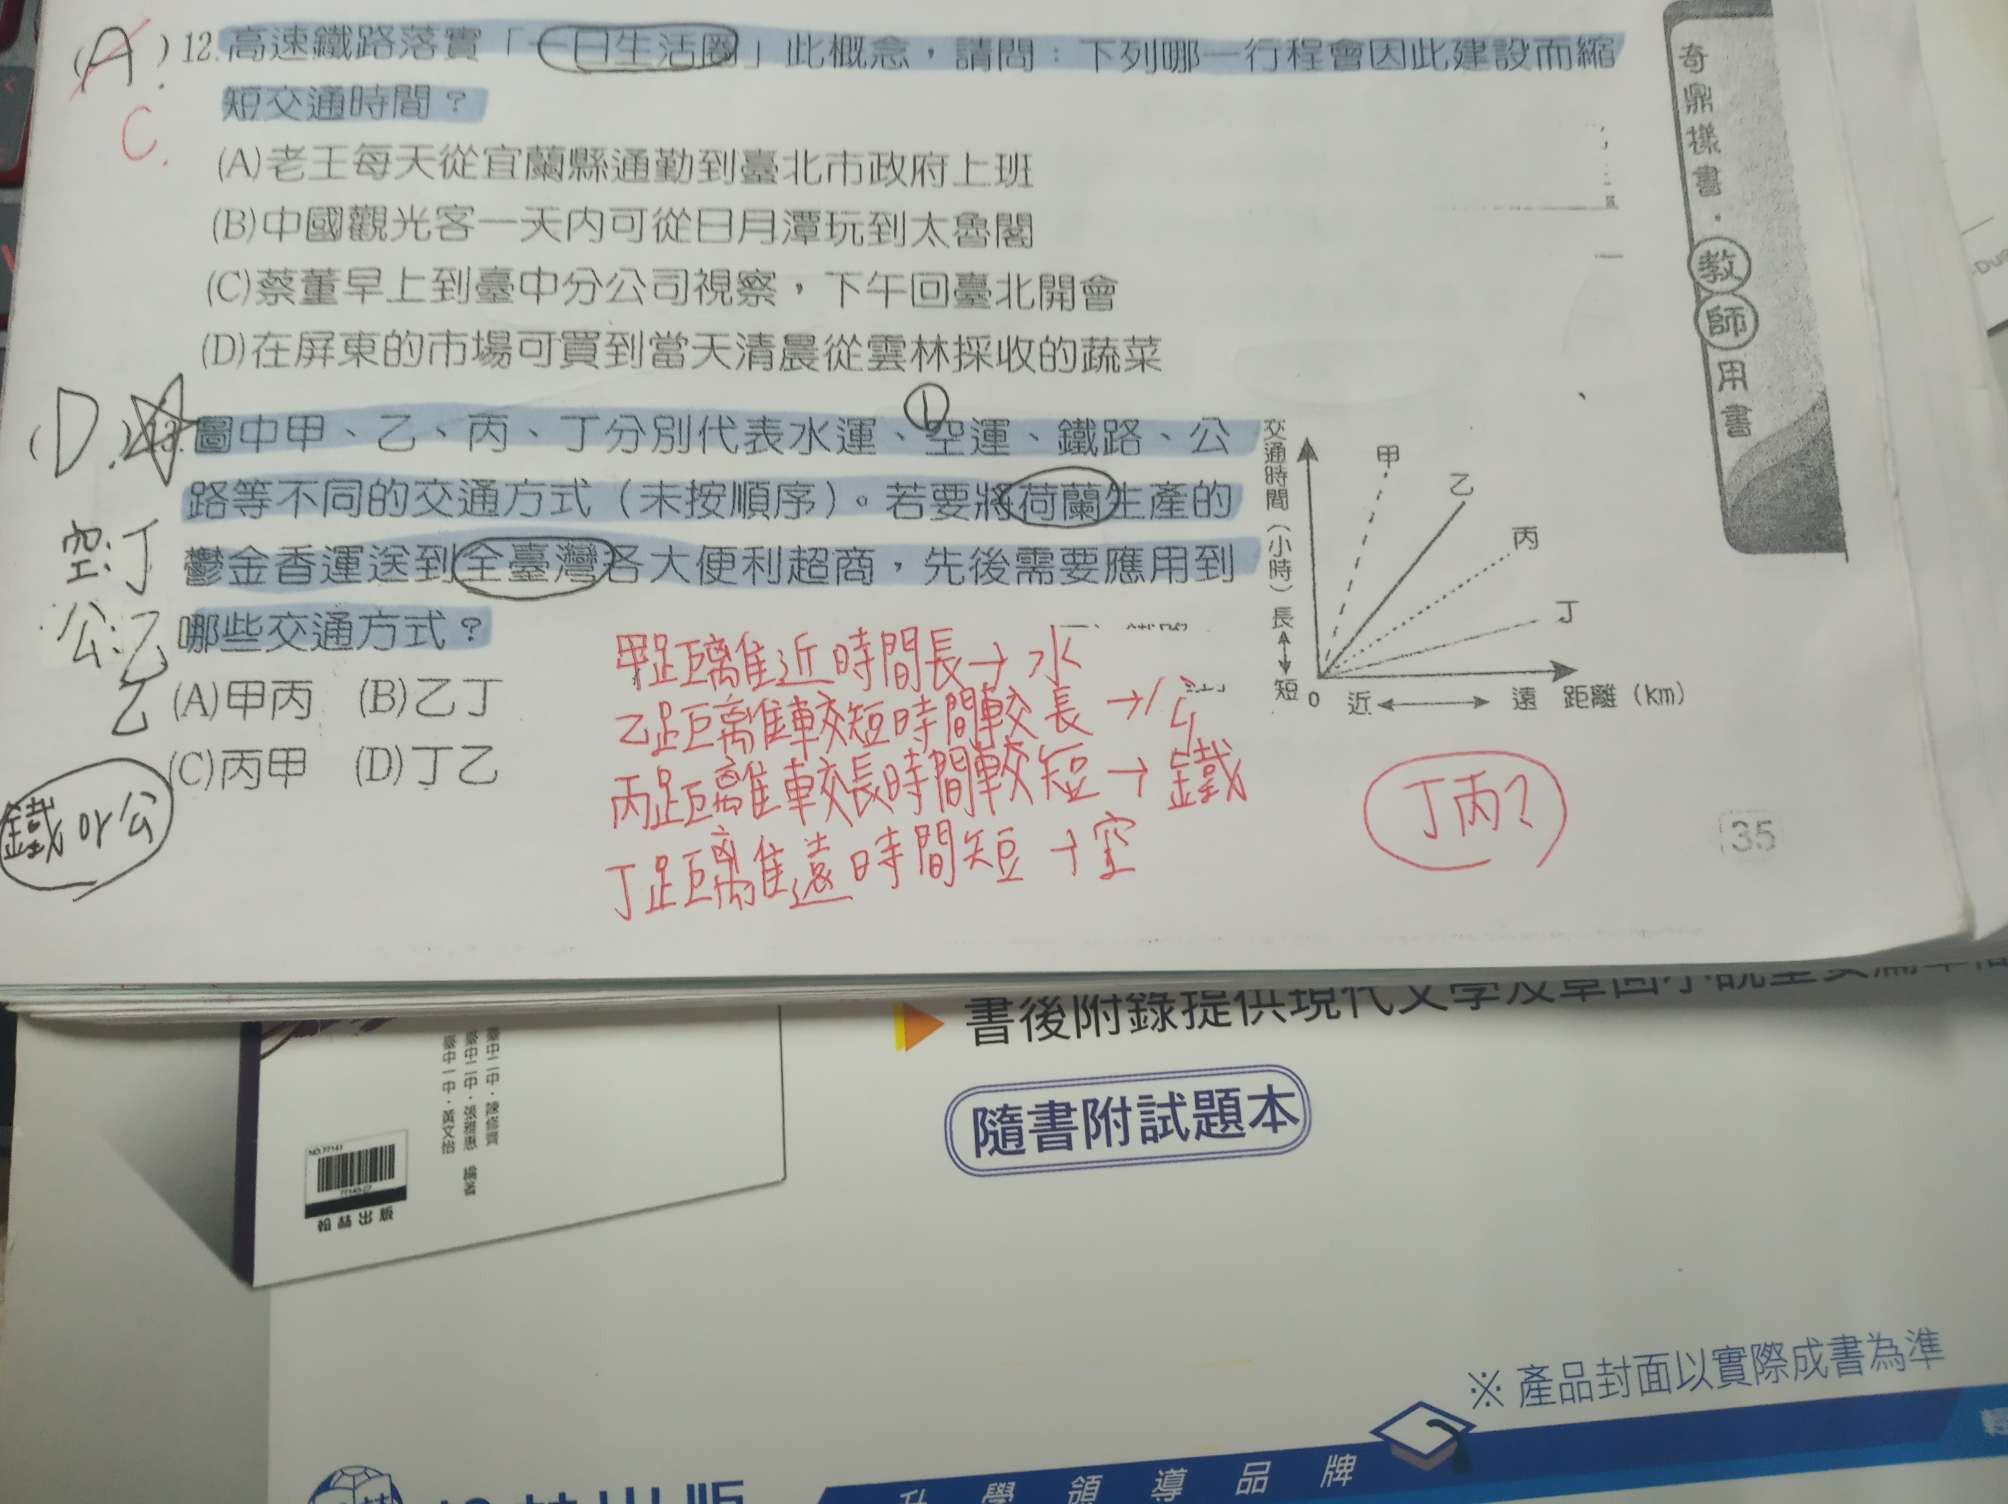 (A.) 12.高速鐵路落實「一日生活圈」此概念，請問：下列哪一行程會因此建設而縮
短交通時間？
C.
(A)老王每天從宜蘭縣通勤到臺北市政府上班
(B)中國觀光客一天內可從日月潭玩到太魯閣
(C)蔡董早上到臺中分公司視察，下午回臺北開會
(D)在屏東的市場可買到當天清晨從雲林採收的蔬菜
(D.) 13.圖中甲、乙、丙、丁分別代表水運、空運、鐵路、公
路等不同的交通方式（未按順序）。若要將荷蘭生產的
鬱金香運送到全臺灣各大便利超商，先後需要應用到
哪些交通方式？
(A)甲丙 (B)乙丁
(C)丙甲 (D)丁乙
①
空:丁
公:乙
乙
鐵 or 公
甲距離近時間長→水
乙距離較短時間較長→公
丙距離較長時間較短→鐵
丁距離遠時間短→空
交通時間（小時）長
短
甲
乙
丙
丁
0 近 遠 距離（km）
丁丙?
35
奇鼎樣書・教師用書
書後附錄提供現代文學及章回小說重要篇章
隨書附試題本
臺中二中・陳修齊
臺中二中・張雅惠 編著
臺中一中・黃文怡
NO.77141
翰林出版
※ 產品封面以實際成書為準
升學領導品牌
翰林出版